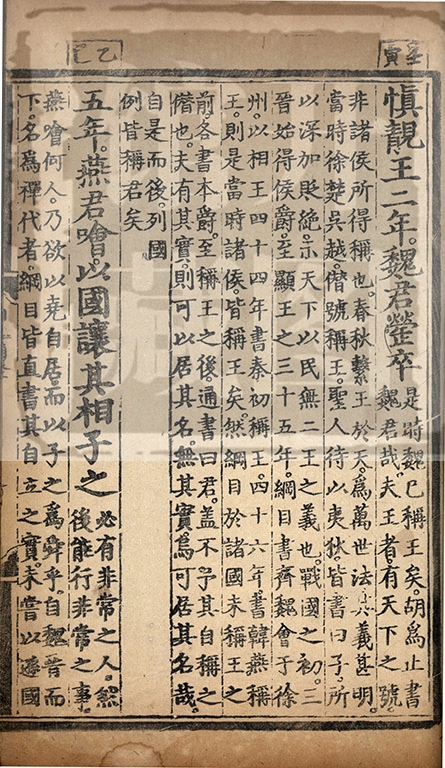 壬寅
慎靚王二年。魏君罃卒
是時魏已稱王矣。胡爲止書
魏君哉。夫王者。有天下之號
非諸侯所得稱也。春秋繫王於天。爲萬世法。義甚明。
當時徐楚吳越。僭號稱王。聖人待以夷狄。皆書曰子。所
以深加貶絶。示天下以民無二王之義也。戰國之初。三
晉始得侯爵。至顯王之三十五年。綱目書齊魏會于徐
州。以相王。四十四年書秦初稱王。四十六年。書韓燕稱
王。則是當時諸侯皆稱王矣。然綱目於諸國未稱王之
前。各書本爵。至稱王之後。通書曰君。盖不予其自稱之
僭也。夫有其實。則可以居其名。無其實。焉可居其名哉。
自是而後。列國
例皆稱君矣
乙巳
五年。燕君噲以國讓其相子之
必有非常之人。然
後能行非常之事
燕噲何人。乃欲以堯自居。而以子之爲舜乎。自魏晉而
下。名爲禪代者。綱目皆直書其自立之實。未嘗以遜國